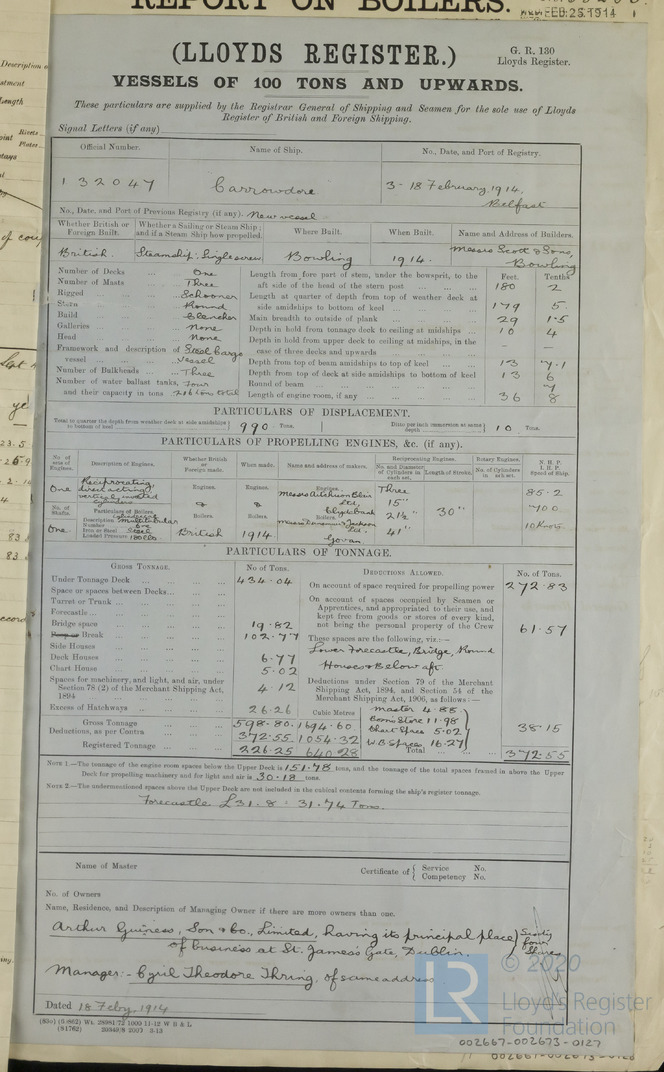 REPORT ON BOILERS.
FEB.25.1914
(LLOYDS REGISTER.)
G. R. 130
Lloyds Register.
VESSELS OF 100 TONS AND UPWARDS.
These particulars are supplied by the Registrar General of Shipping and Seamen for the sole use of Lloyds
Register of British and Foreign Shipping.
Signal Letters (if any)
Official Number. Name of Ship. No., Date, and Port of Registry.
132047 Carrowdore 3-18 February, 1914.
Belfast
No., Date, and Port of Previous Registry (if any). New vessel
Whether British or Foreign Built. Whether a Sailing or Steam Ship; and if a Steam Ship how propelled. Where Built. When Built. Name and Address of Builders.
British. Steamship: Single screw Bowling 1914. Messrs Scott & Sons, Bowling
Feet. Tenths
Number of Decks ... One Length from fore part of stem, under the bowsprit, to the
Number of Masts ... Three aft side of the head of the stern post 180 2
Rigged ... Schooner Length at quarter of depth from top of weather deck at
Stern ... Round side amidships to bottom of keel 179 5.
Build ... Clencher Main breadth to outside of plank 29 1.5
Galleries ... None Depth in hold from tonnage deck to ceiling at midships 10 4
Head ... None Depth in hold from upper deck to ceiling at midships, in the
Framework and description of vessel ... Steel Cargo Vessel case of three decks and upwards - -
Number of Bulkheads ... Three Depth from top of beam amidships to top of keel 13 7.1
Number of water ballast tanks, Four Depth from top of deck at side amidships to bottom of keel 13 6
and their capacity in tons 216 tons total Round of beam 7
Length of engine room, if any 36 8
PARTICULARS OF DISPLACEMENT.
Total to quarter the depth from weather deck at side amidships to bottom of keel 990 Tons. Ditto per inch immersion at same depth 10 Tons.
PARTICULARS OF PROPELLING ENGINES, &c. (if any).
No. of sets of Engines. Description of Engines. Whether British or Foreign made. When made. Name and address of makers. Reciprocating Engines. Rotary Engines. N.H.P. I.H.P. Speed of Ship.
No. and Diameter of Cylinders in each set. Length of Stroke. No. of Cylinders in each set.
One Reciprocating direct acting vertical inverted cylinders Engines. & Engines. & Engines. Messrs Aitchison Blair Ltd, Clydebank Three 15" 21½" 41" 30" 85.2
700
10 Knots
No. of Shafts. Particulars of Boilers.
One Description Cylindrical Multitubular
Number One
Iron or Steel Steel
Loaded Pressure 180 lbs. Boilers. British Boilers. 1914. Boilers. Jackson Ltd. Govan
PARTICULARS OF TONNAGE.
GROSS TONNAGE. No. of Tons. DEDUCTIONS ALLOWED. No. of Tons.
Under Tonnage Deck 434.04 On account of space required for propelling power 272.83
Space or spaces between Decks On account of spaces occupied by Seamen or
Turret or Trunk Apprentices, and appropriated to their use, and
Forecastle kept free from goods or stores of every kind,
Bridge space 19.82 not being the personal property of the Crew 61.57
Poop or Break 102.77 These spaces are the following, viz.:—
Side Houses Lower Forecastle, Bridge, Round
Deck Houses 6.77 Houses & Below aft
Chart House 5.02
Spaces for machinery, and light, and air, under Section 78 (2) of the Merchant Shipping Act, 1894 4.12 Deductions under Section 79 of the Merchant Shipping Act, 1894, and Section 54 of the Merchant Shipping Act, 1906, as follows:—
Excess of Hatchways 26.26 Cubic Metres Master 4.88
Gross Tonnage 598.80 1694.60 Bosn's Store 11.98
Deductions, as per Contra 372.55 1054.32 Chart Space 5.02 38.15
Registered Tonnage 226.25 640.28 W.B Spces 16.27
Total 372.55
NOTE 1.—The tonnage of the engine room spaces below the Upper Deck is 151.78 tons, and the tonnage of the total spaces framed in above the Upper
Deck for propelling machinery and for light and air is 30.18 tons.
NOTE 2.—The undermentioned spaces above the Upper Deck are not included in the cubical contents forming the ship's register tonnage.
Forecastle £31.8 = 31.74 Tons.
Name of Master Certificate of { Service No. Competency No.
No. of Owners
Name, Residence, and Description of Managing Owner if there are more owners than one.
Arthur Guiness, Son & Co., Limited, having its principal place
of business at St. James's Gate, Dublin. Sixty four Shares
Manager:- Cyril Theodore Thring, of same address
Dated 18 Feby. 1914
© 2020
LR
Lloyd's Register
Foundation
002667-002673-0127